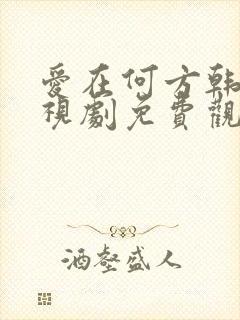 愛在何方韩
視劇免費觀
酒壑盛人